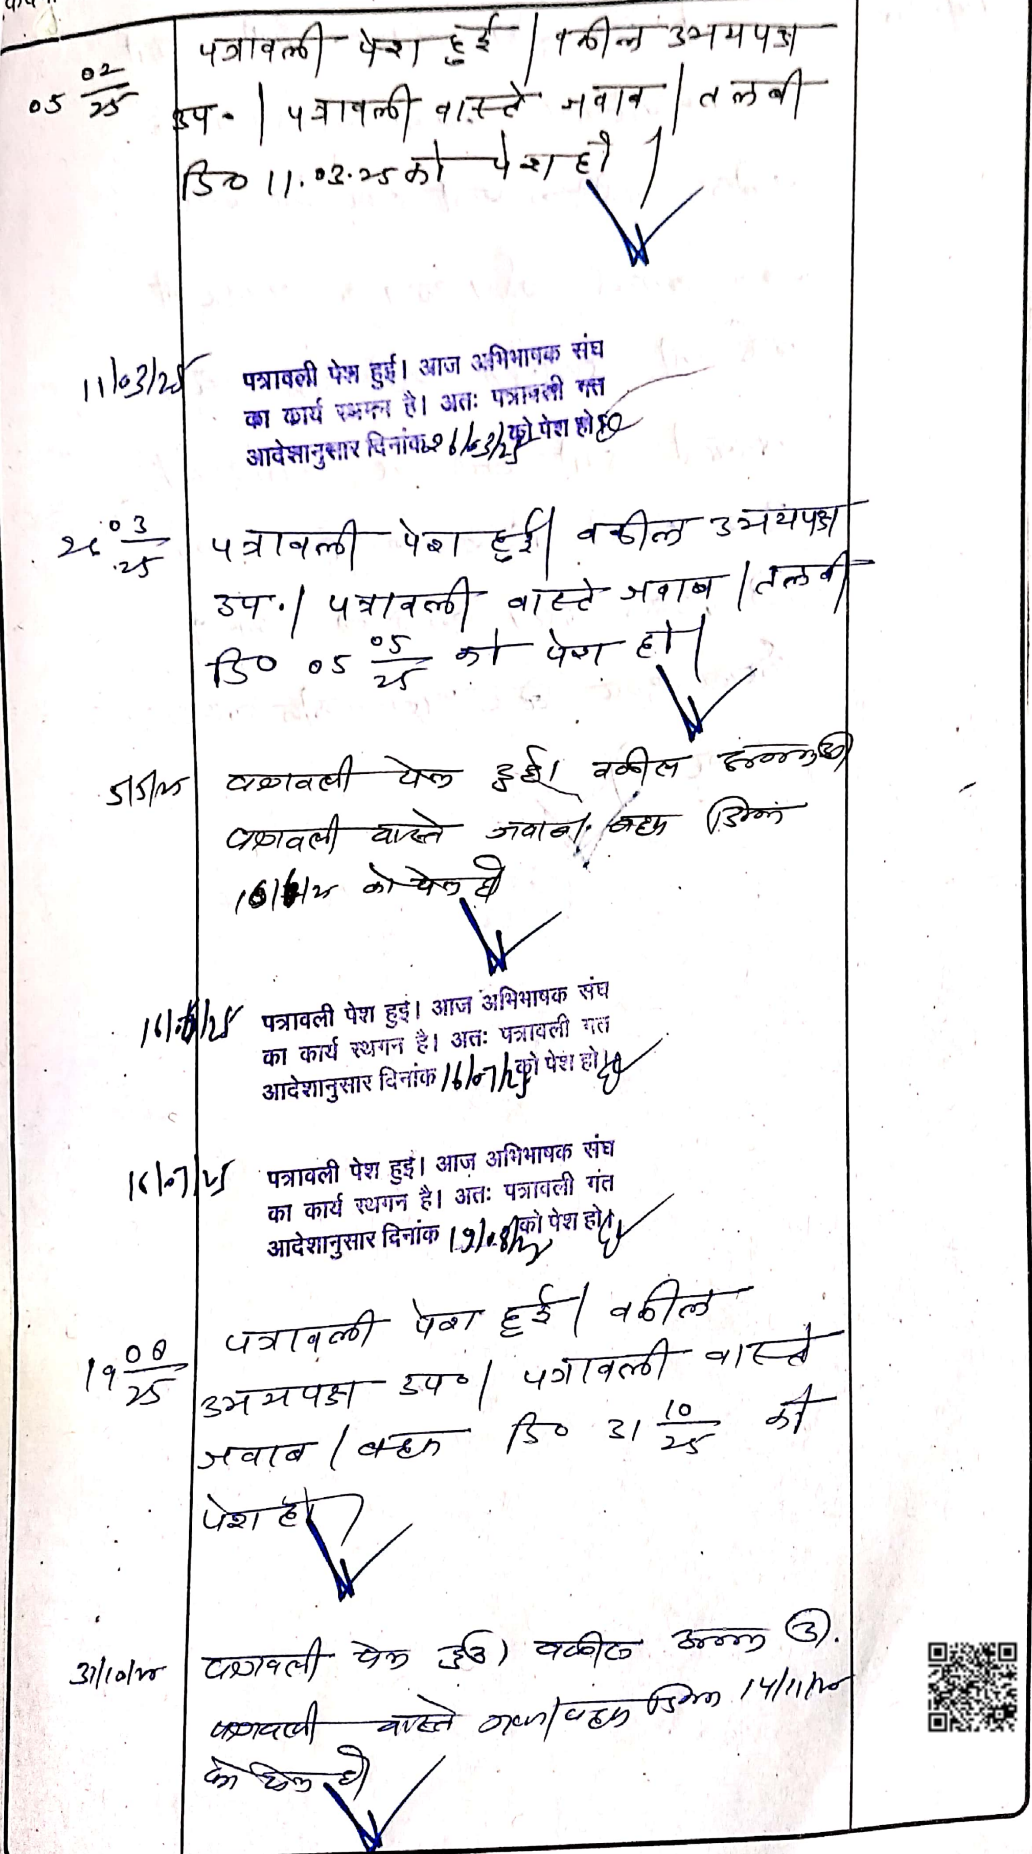 05 02/25 पत्रावली पेश हुई | वकील उभयपक्ष
उप. | पत्रावली वास्ते जवाब | तलबी
दि० 11.03.25 को पेश हो |
11/03/25 पत्रावली पेश हुई। आज अभिभाषक संघ
का कार्य स्थगन है। अतः पत्रावली गत
आदेशानुसार दिनांक 26/03/25 को पेश हो
26 03/25 पत्रावली पेश हुई | वकील उभयपक्ष
उप. | पत्रावली वास्ते जवाब | तलबी
दि० 05 05/25 को पेश हो |
5/5/25 पत्रावली पेश हुई। वकील
पत्रावली वास्ते जवाब / बहस दिनांक
को पेश हो
पत्रावली पेश हुई। आज अभिभाषक संघ
का कार्य स्थगन है। अतः पत्रावली गत
आदेशानुसार दिनांक 16/07/25 को पेश हो
16/07/25 पत्रावली पेश हुई। आज अभिभाषक संघ
का कार्य स्थगन है। अतः पत्रावली गत
आदेशानुसार दिनांक 19/08/25 को पेश हो
19 08/25 पत्रावली पेश हुई | वकील
उभयपक्ष उप० | पत्रावली वास्ते
जवाब / बहस दि० 31 10/25 को
पेश हो
31/10/25 पत्रावली पेश हुई। वकील
पत्रावली वास्ते बहस दिनांक 14/11/25
को पेश हो